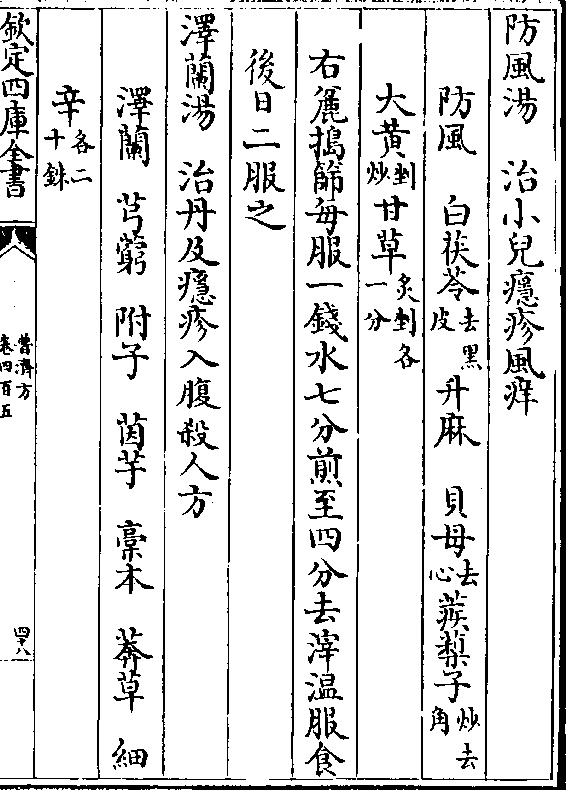 防風湯　治小兒癮疹風痒
防風　白茯苓去黑皮　升麻　貝母去心　蒺蔾子炒去角
大黄剉炒　甘草炙剉各一分
右麄搗篩每服一錢水七分煎至四分去滓温服食
後日二服之
澤蘭湯　治丹及癮疹入腹殺人方
澤蘭　芎藭　附子　茵芋　藁木　莽草　細
辛各二十銖
欽定四庫全書
普濟方
卷四百五
四十八